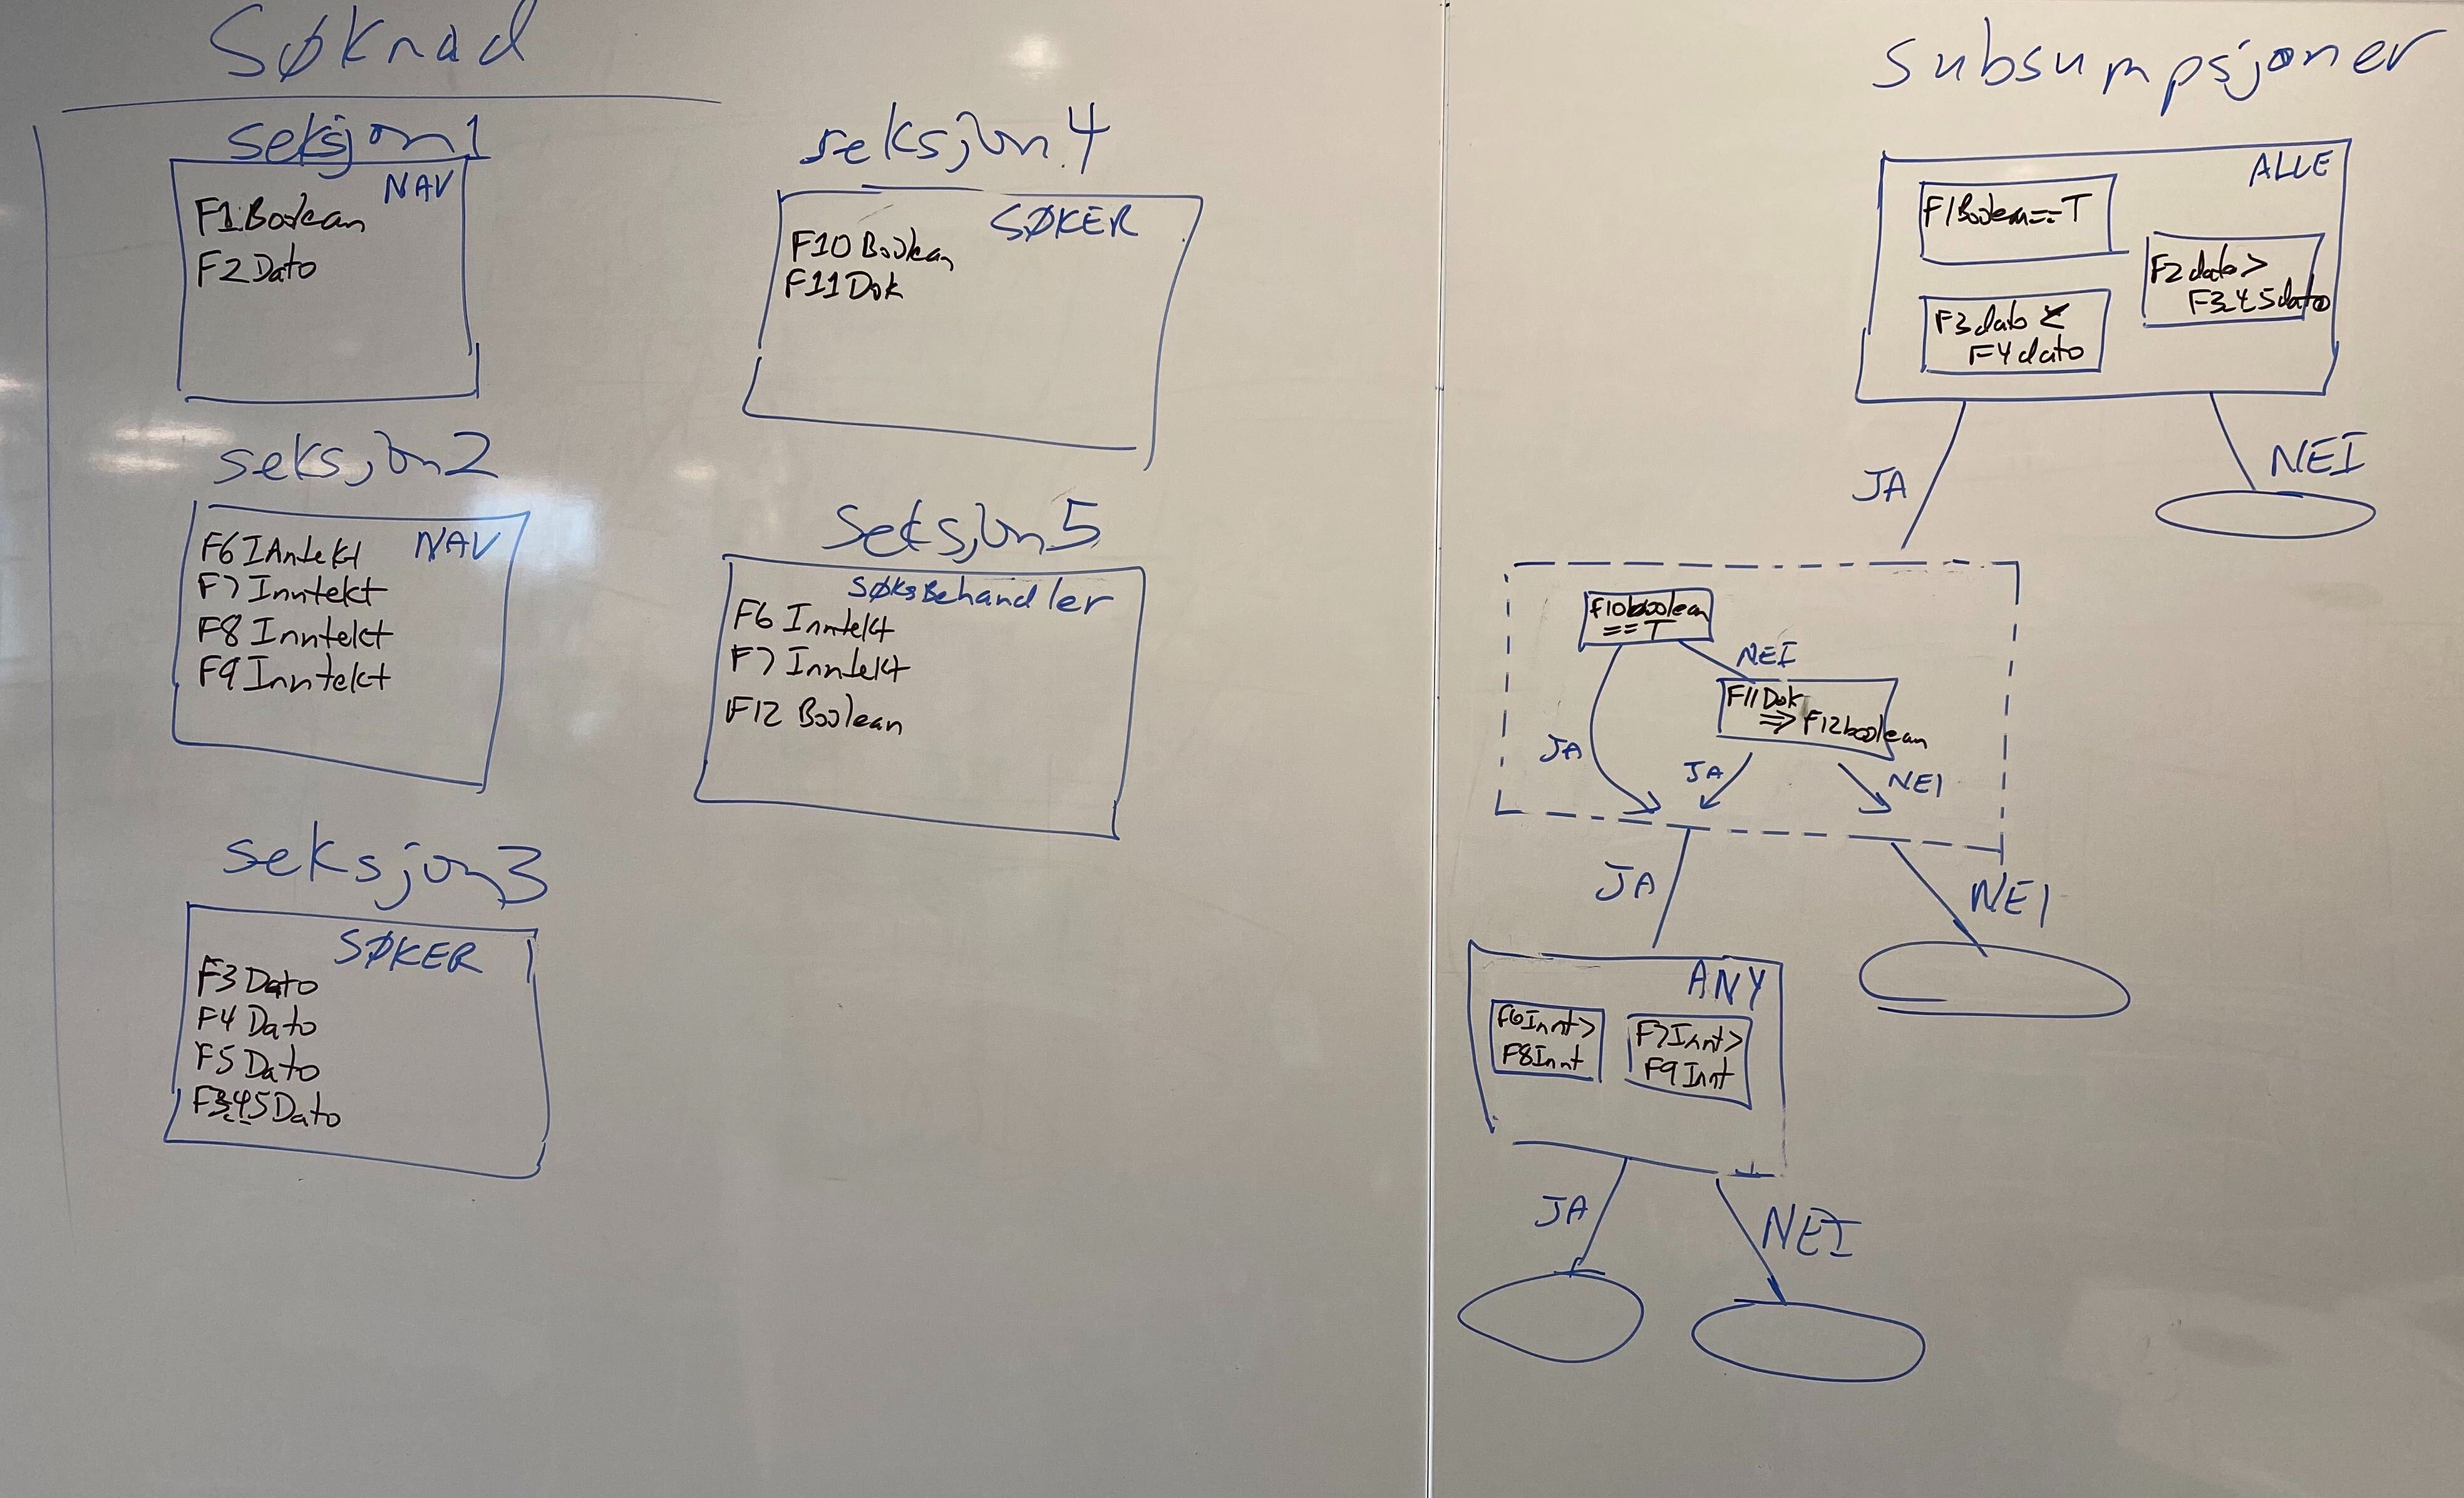 Søknad
seksjon1
NAV
F1 Boolean
F2 Dato
seksjon2
NAV
F6 IAntekt
F7 Inntekt
F8 Inntekt
F9 Inntekt
seksjon3
SØKER
F3 Dato
F4 Dato
F5 Dato
F345 Dato
seksjon4
SØKER
F10 Boolean
F11 Dok
Seksjon5
SøksBehandler
F6 Inntekt
F7 Inntekt
F12 Boolean
subsumpsjoner
ALLE
F1 Boolean==T
F2 dato >
F345dato
F3 dato <
F4 dato
JA
NEI
F10 boolean
== T
NEI
F11 Dok
⇒ F12 boolean
JA
JA
NEI
JA
NEI
ANY
F6 Innt >
F8 Innt
F7 Innt >
F9 Innt
JA
NEI